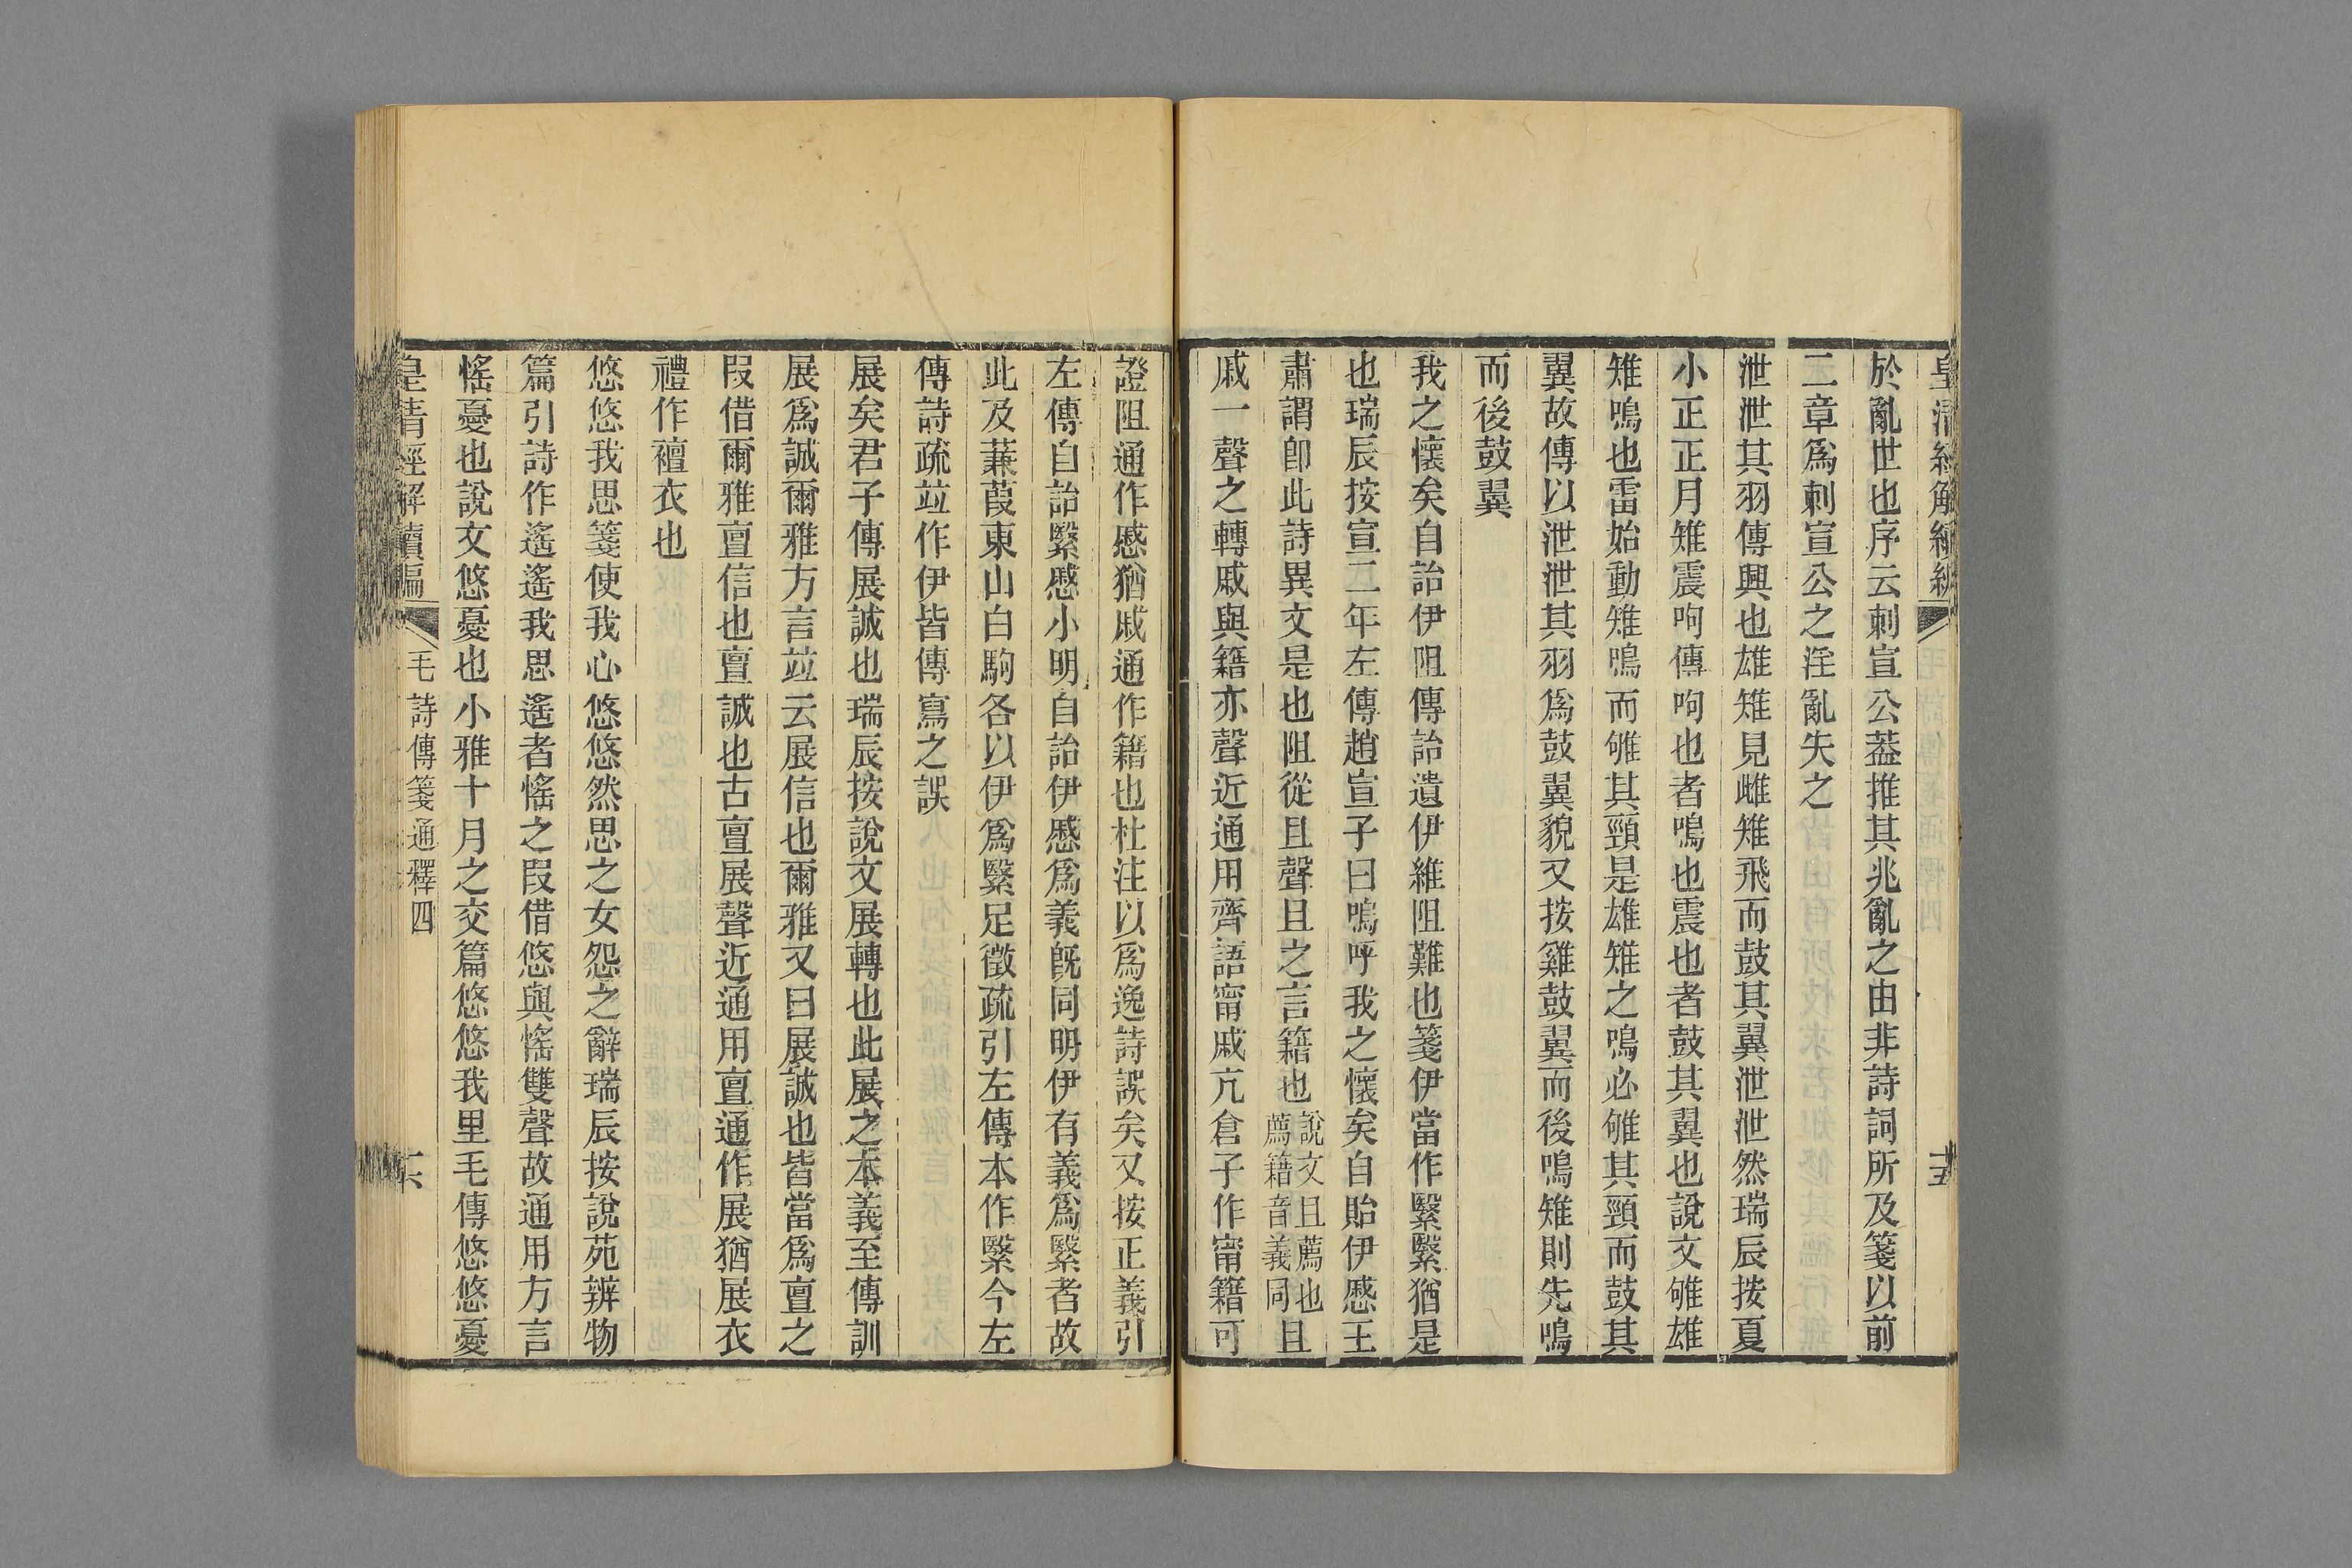 於亂世也序云刺宣公葢推其兆亂之由非詩詞所及箋以前
二章爲刺宣公之淫亂失之
泄泄其羽傳興也雄雉見雌雉飛而鼓其翼泄泄然瑞辰按夏
小正正月雉震呴傳呴也者鳴也震也者鼓其翼也說文雊雄
雉鳴也雷始動雉鳴而雊其頸是雄雉之鳴必雊其頸而鼓其
翼故傳以泄泄其羽爲鼓翼貌又按雞鼓翼而後鳴雉則先鳴
而後鼓翼
我之懷矣自詒伊阻傳詒遺伊維阻難也箋伊當作繄繄猶是
也瑞辰按宣二年左傳趙宣子曰嗚呼我之懷矣自貽伊慼王
肅謂卽此詩異文是也阻從且聲且之言籍也說文且薦也且薦籍音義同
戚一聲之轉戚與籍亦聲近通用齊語甯戚亢倉子作甯籍可
證阻通作慼猶戚通作籍也杜注以爲逸詩誤矣又按正義引
左傳自詒繄慼小明自詒伊慼爲義旣同明伊有義爲繄者故
此及蒹葭東山白駒各以伊爲繄足徵疏引左傳本作繄今左
傳詩疏竝作伊皆傳寫之誤
展矣君子傳展誠也瑞辰按說文展轉也此展之本義至傳訓
展爲誠爾雅方言竝云展信也爾雅又曰展誠也皆當爲亶之
叚借爾雅亶信也亶誠也古亶展聲近通用亶通作展猶展衣
禮作襢衣也
悠悠我思箋使我心悠悠然思之女怨之辭瑞辰按說苑辨物
篇引詩作遙遙我思遙者愮之叚借悠與愮雙聲故通用方言
愮憂也說文悠憂也小雅十月之交篇悠悠我里毛傳悠悠憂
皇清經解續編 毛詩傳箋通釋四